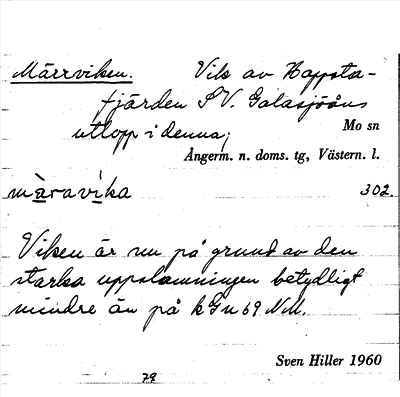 Märrviken. Vik av Happsta-
fjärden SV. Galasjöåns
utlopp i denna;
Mo sn
Ångerm. n. doms. tg, Västern. l.
mä̀ravi̇ka 302.
Viken är nu på grund av den
starka uppslamningen betydligt
mindre än på kGu 69 NM.
Sven Hiller 1960
79